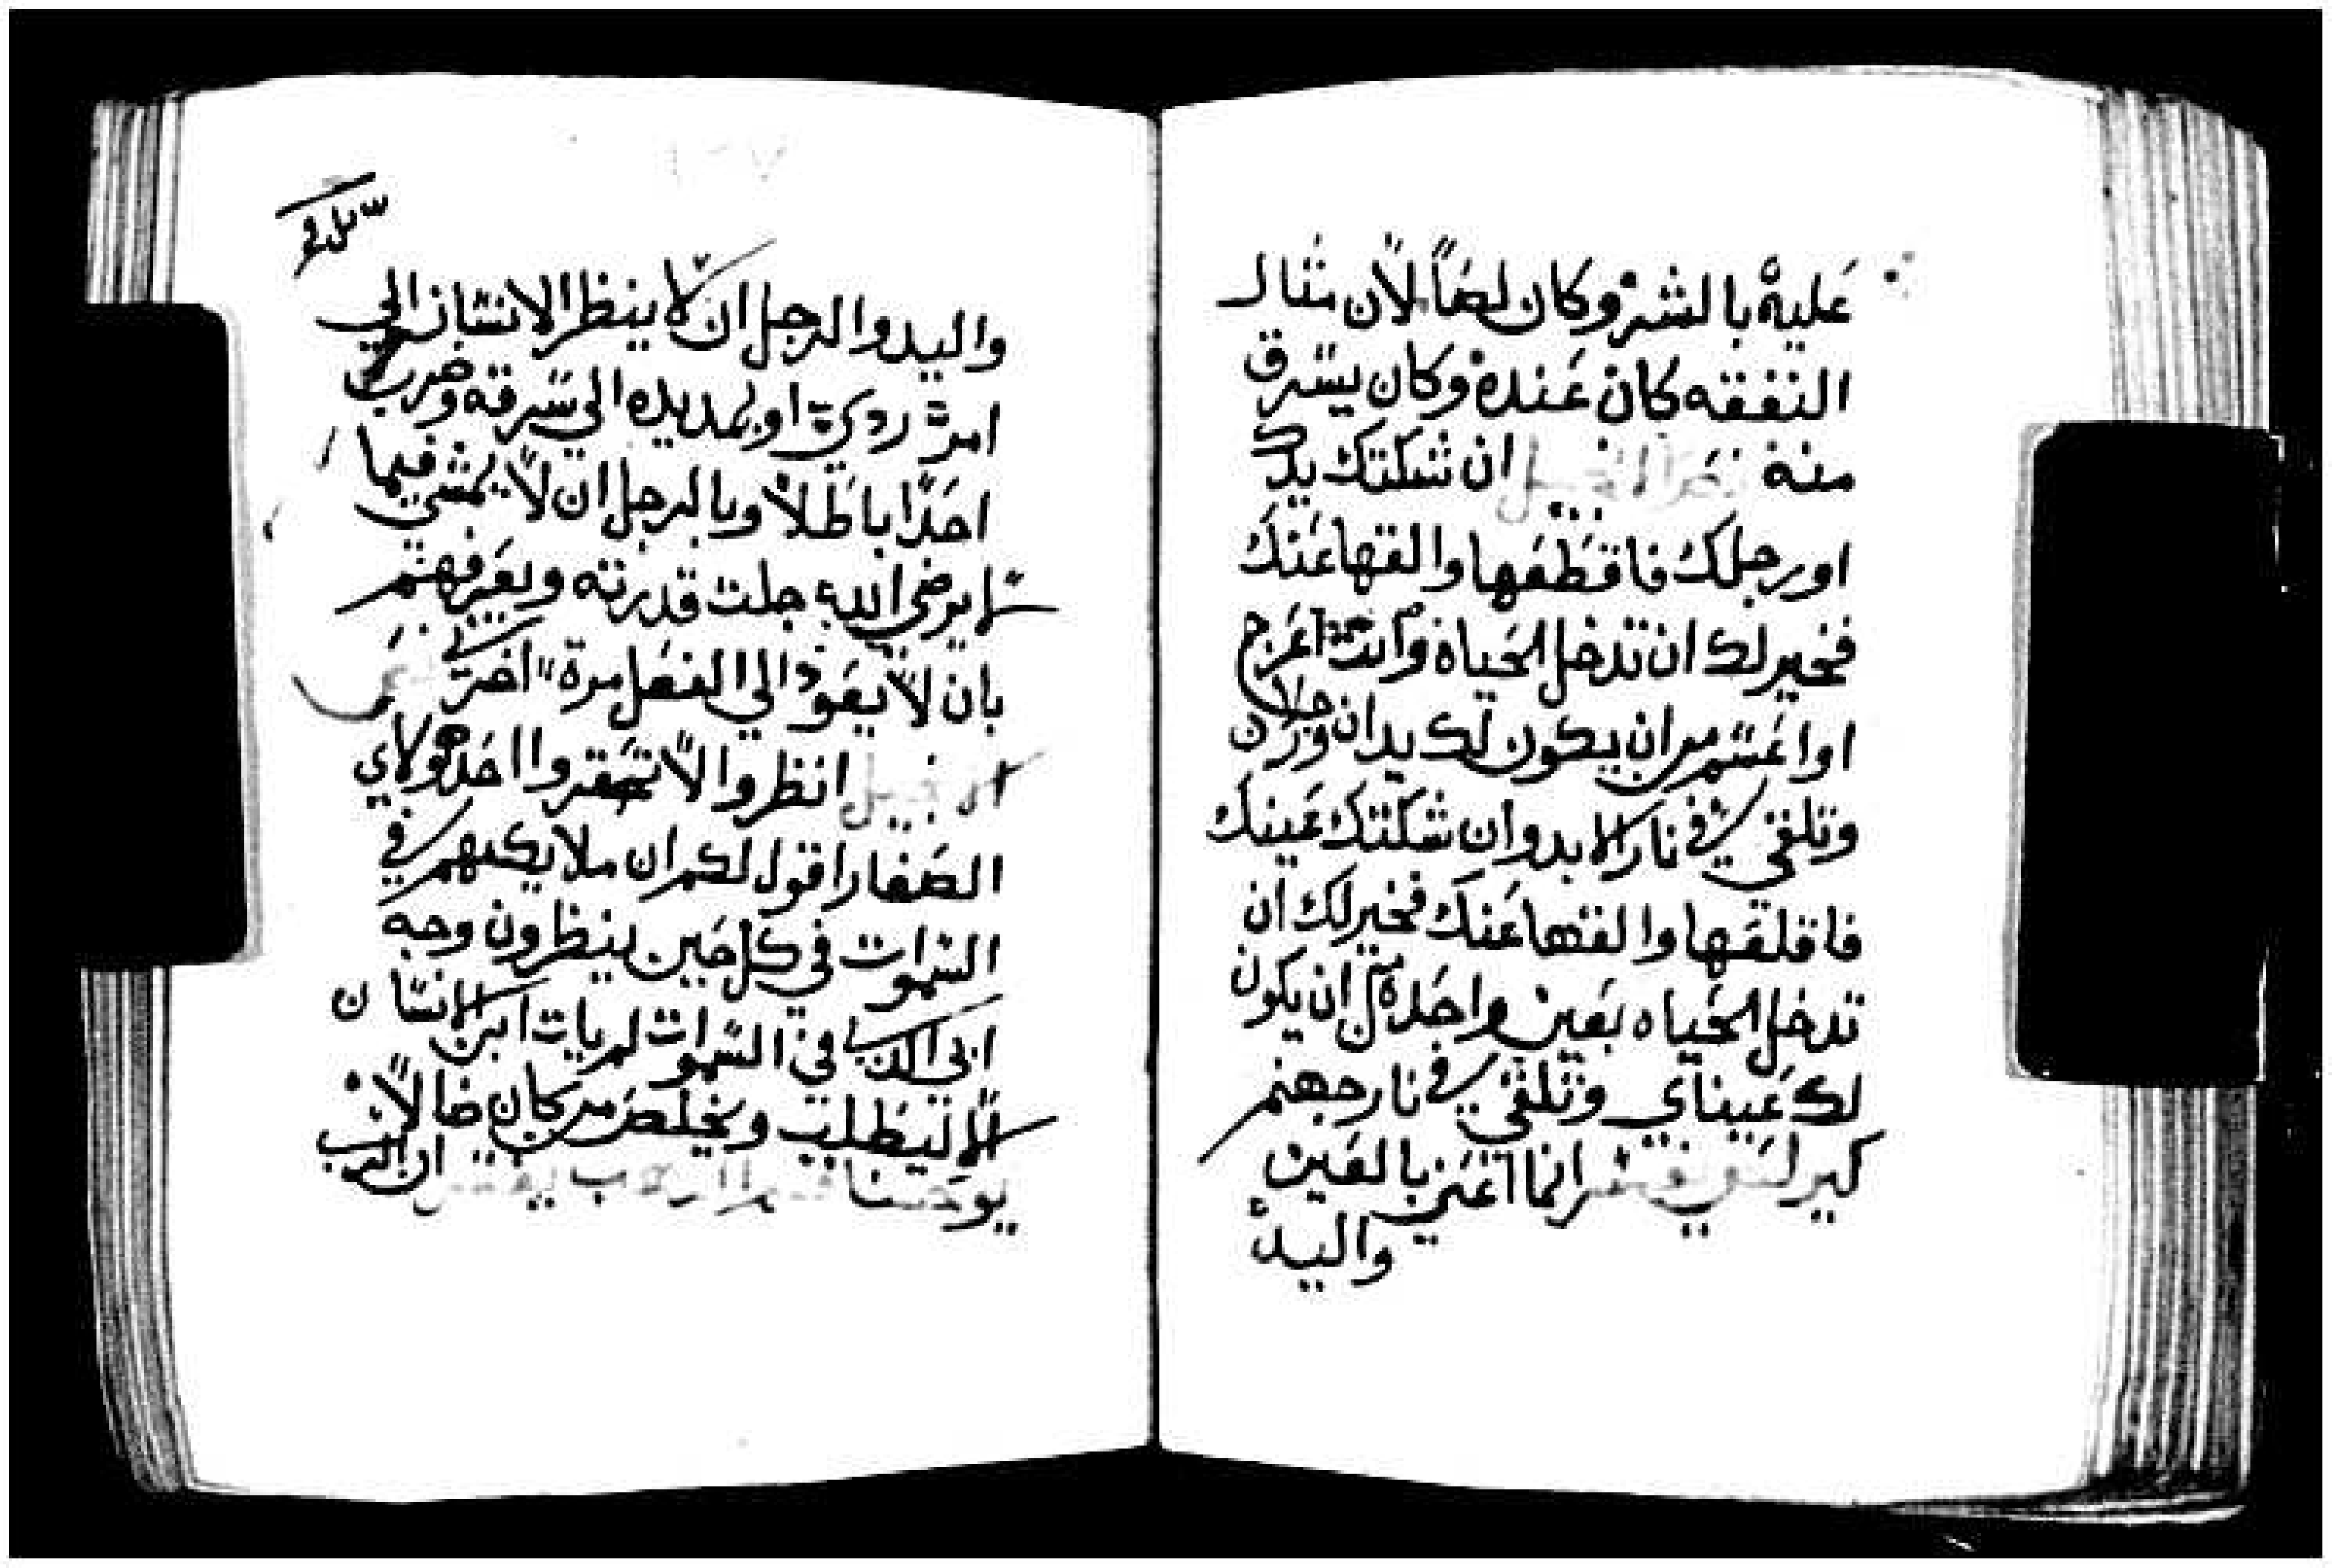 عليه بالشر وكان لصاً لان مثال
النفقه كان عنده وكان يسرق
منه نص الانجيل ان شكتك يدك
او رجلك فاقطعها والقها عنك
فخير لك ان تدخل الحياة وانت اعرج
او اعسم من ان يكون لك يدان ورجلان
وتلقي في نار الابد وان شكتك عينك
فاقلعها والقها عنك فخير لك ان
تدخل الحياه بعين واحدة من ان يكون
لك عينان وتلقي في نار جهنم
كيرلس يفسر انما اعني بالعين
واليد
واليد والرجل ان لا ينظر الانسان الي
امرة ردية او يمد يده الي سرقه وضرب
احدا باطلا وبالرجل ان لا يمشي فيما
لا يرضي الله جلت قدرته ويعرفهم
بان لا يعود الي الفعل مرة اخري
الانجيل انظروا لا تحقروا احد هولاي
الصغار اقول لكم ان ملايكتهم في
السموات في كل حين ينظرون وجه
ابي الذي في السموات لم يات ابن الانسان
الا ليطلب ويخلص من كان ضالا
يوحنا فم الدهب يفسر ان الرب